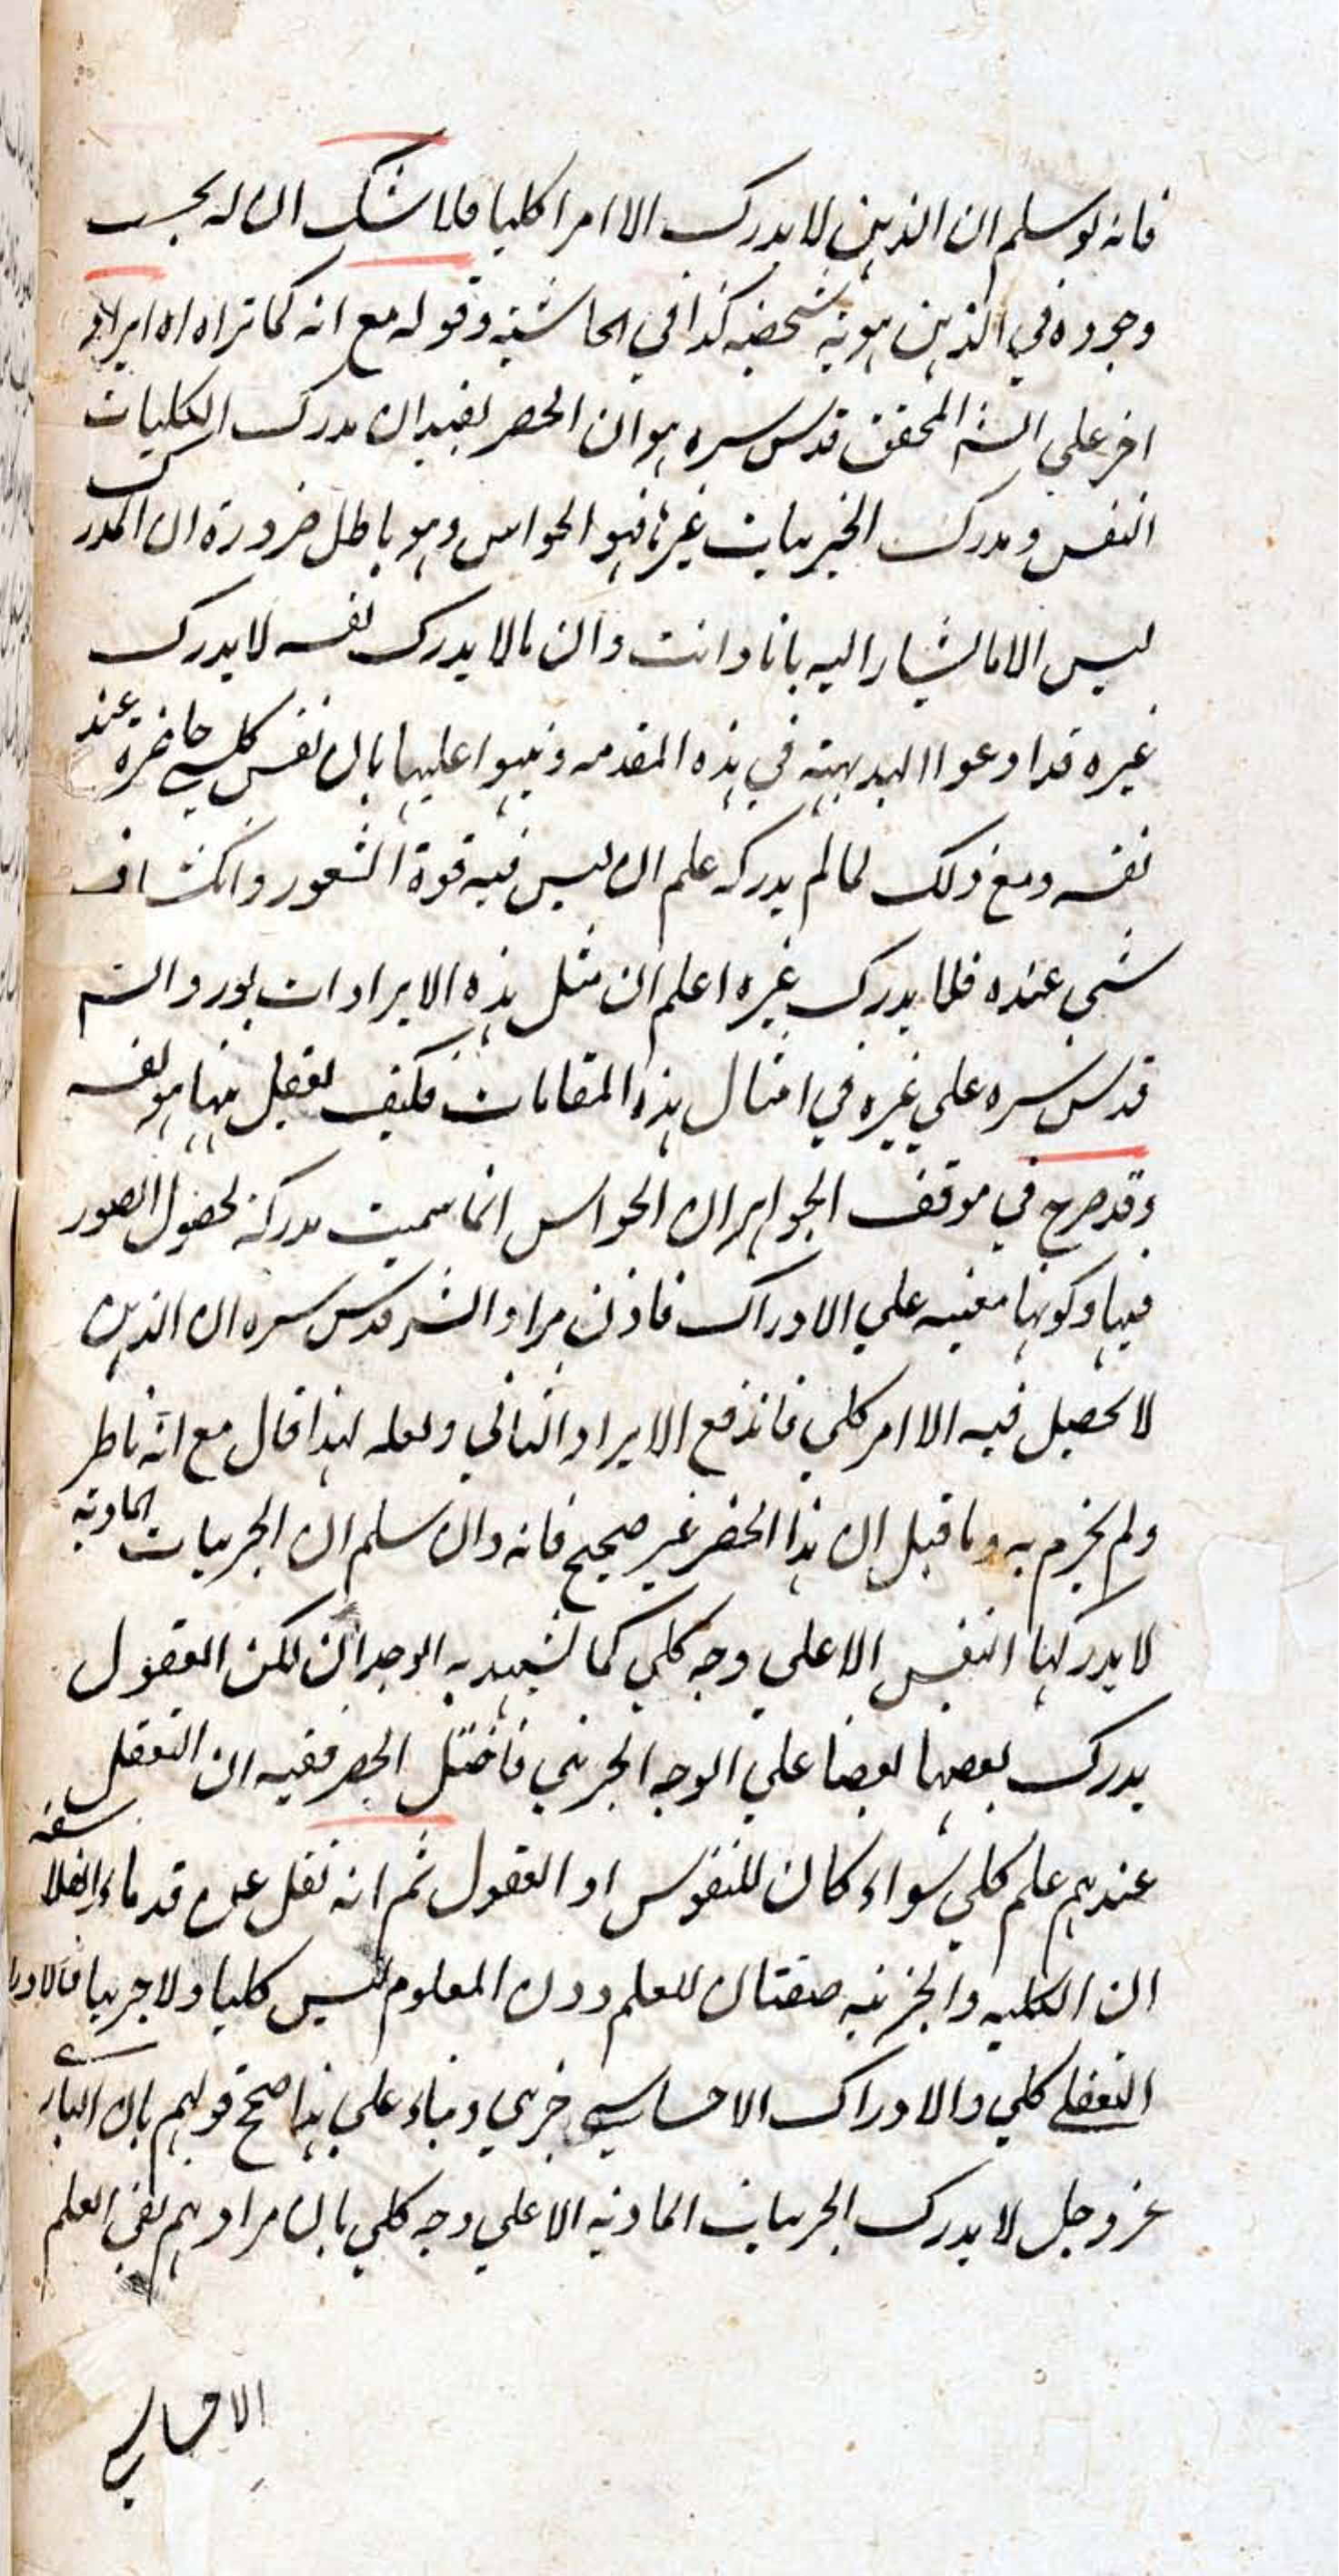 فانه لو سلم ان الذهن لا يدرك الا امرا كليا فلا شك ان له بحسب
وجوده في الذهن هوية شخصية كذا في الحاشية وقوله مع انه كما تراه اه ايراد
اخر علي الش المحقق قدس سره هو ان الحصر يفيد ان مدرك الكليات
النفس ومدرك الجزئيات غيرها فهو الحواس وهو باطل ضرورة ان المدرك
ليس الا ما يشار اليه بانا وانت وان ما لا يدرك نفسه لا يدرك
غيره قد ادعوا البديهة في هذه المقدمه ونبهوا عليها بان نفس كل شي حاضرة عند
نفسه ومع ذلك لما لم يدركه علم ان ليس فيه قوة الشعور وانكشاف
شي عنده فلا يدرك غيره اعلم ان مثل هذه الايرادات يورد الش
قدس سره علي غيره في امثال هذه المقامات فكيف يغفل عنها هو نفسه
وقد صرح في موقف الجواهر ان الحواس انما سميت مدركة لحصول الصور
فيها وكونها معينه علي الادراك فاذن مراد الش قدس سره ان الذهن
لا يحصل فيه الا امر كلي فاندفع الايراد الثاني ولعله لهذا قال مع انه ناظر
ولم يجزم به وما قيل ان هذا الحصر غير صحيح فانه وان سلم ان الجزئيات المادية
لا يدركها النفس الا علي وجه كلي كما يشهد به الوجدان لكن العقول
يدرك بعضها بعضا علي الوجه الجزئي فاختل الحصر ففيه ان التعقل
عندهم علم كلي سواء كان للنفوس او العقول ثم انه نقل عن قدماء الفلاسفه
ان الكليه والجزئيه صفتان للعلم ودن المعلوم ليس كليا ولا جزئيا فالادراك
التعقلي كلي والادراك الاحساسي جزئي وبناء علي هذا صح قولهم بان الباري
عز وجل لا يدرك الجزئيات الماديه الا علي وجه كلي بان مرادهم نفي العلم
الاحساسي